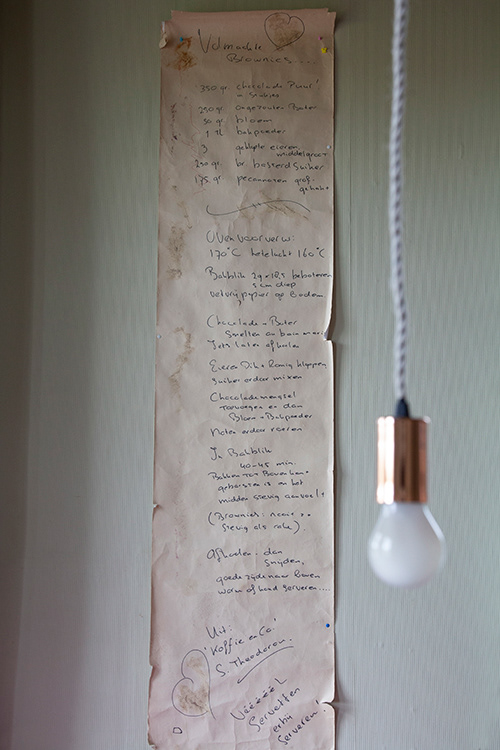 Volmaakte
Brownies....
350 gr. chocolade Puur!
in stukjes
250 gr. ongezouten Boter
50 gr. bloem
1 tl. bakpoeder
3 geklopte eieren,
middelgroot
250 gr. br basterdsuiker
175 gr. pecannoten grof
gehakt
Oven voorverw:
170°C hetelucht 160°C
Bakblik beboteren
5 cm diep
vetvrij papier op Bodem
Chocolade + Boter
Smelten au bain marie
Iets laten afkoelen
Eieren Dik + Romig kloppen
Suiker erdoor mixen
Chocolademengsel
toevoegen en dan
Bloem + Bakpoeder
Noten erdoor roeren
In Bakblik
40-45 min.
Bakken tot Bovenkant
gebarsten is en het
midden stevig aanvoelt
(Brownies: nooit zo
stevig als cake).
Afkoelen. dan
Snijden,
goede zijde naar boven
warm of koud serveren....
Uit:
'Koffie en Co.'
S. Theodorou.
Vééééél
Servetten
erbij
Serveren!